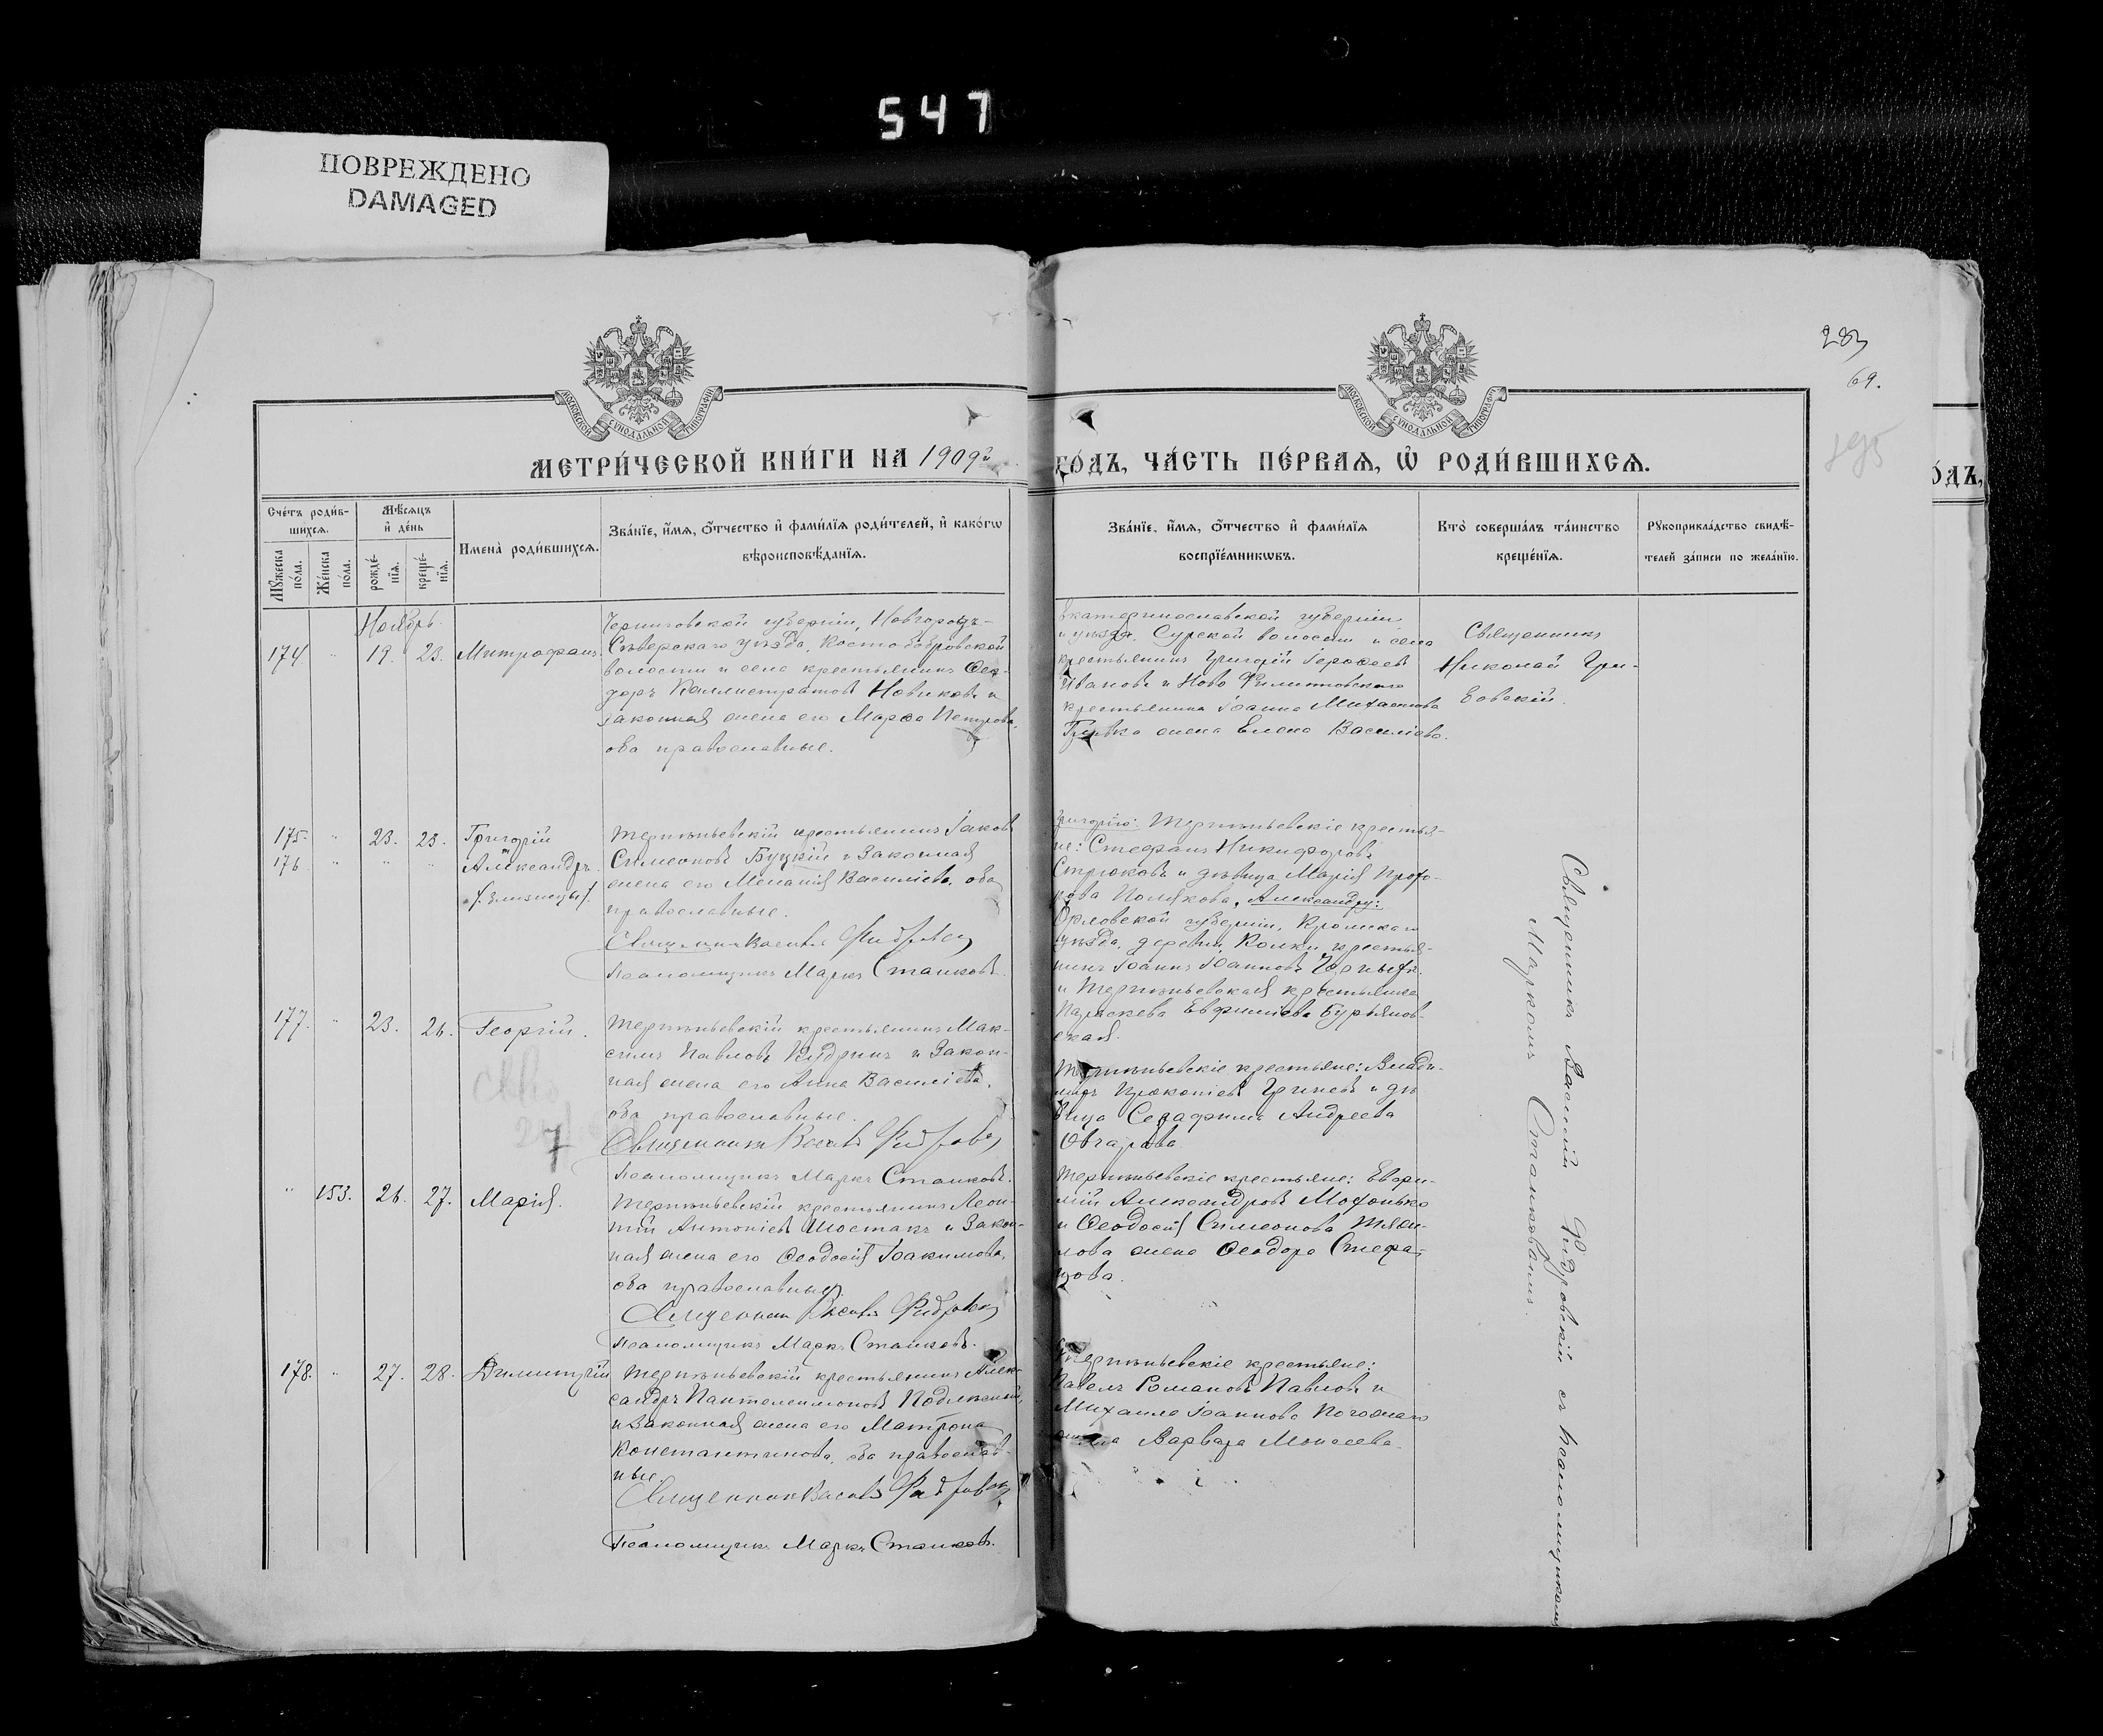 547
ПОВРЕЖДЕНО
DAMAGED
283
69.
МОСКОВСКОЙ СУНОДАЛЬНОЙ ТИПОГРАФІИ
МОСКОВСКОЙ СУНОДАЛЬНОЙ ТИПОГРАФІИ
МЕТРИ́ЧЕСКОЙ КНИ́ГИ НА 1909й
ГО́ДЪ, ЧА́СТЬ ПЕ́РВАЯ, Ѽ РОДИ́ВШИХСЯ.
О́ДЪ,
Сче́тъ роди́в-
шихся.
Мꙋ́жеска по́ла.
Же́нска по́ла.
Мѣ́сяцъ
и҆ де́нь
рожде́-
нїя.
креще́-
нїя.
Имена̀ роди́вшихся.
Зва́нїе, и҆́мя, ѻ҆́тчество и҆ фами́лїя роди́телей, и҆ како́гѡ
вѣроисповѣ́данїя.
Зва́нїе, и҆́мя, ѻ҆́тчество и҆ фами́лїя
воспрїе́мникѡвъ.
Кто̀ соверша́лъ та́инство
креще́нїя.
Рꙋкоприкла́дство свидѣ́-
телей за́писи по жела́нїю.
Ноябрь.
174 " 19. 23. Митрофанъ.
Черниговской губерніи, Новгородъ-
Сѣверскаго уѣзда, Костобобровской
волости и села крестьянинъ Ѳео-
доръ Каллистратовъ Новиковъ и
законная жена его Марѳа Петрова,
оба православные.
Екатеринославской губерніи
и уѣзда, Сурской волости и села
крестьянинъ Григорій Іероѳеевъ
Ивановъ и Ново Филипповскаго
крестьянина Іоанна Михаилова
жена Елена Васильева.
Священникъ
Николай Гри-
бовскій.
175. " 23. 23. Григорій
176 " " " Александръ
/близнецы/.
Терпѣньевскій крестьянинъ Іаковъ
Симеоновъ Буцкій и законная
жена его Меланія Васильева, оба
православные.
Священникъ Василій Фидровскій
Псаломщикъ Маркъ Станковъ.
Григорію: Терпѣньевскіе крестья-
не: Стефанъ Никифоровъ
Стрюковъ и дѣвица Марія Прохо-
рова Полякова, Александру:
Орловской губерніи, Кромскаго
уѣзда, деревни Колки крестья-
нинъ Іоаннъ Іоанновъ Черныхъ.
и Терпѣньевская крестьянка
Параскева Евфиміева Бурьянов-
ская.
177. " 23. 26. Георгій.
Терпѣньевскій крестьянинъ Мак-
симъ Павловъ Кудринъ и закон-
ная жена его Анна Васильева,
оба православные.
Священникъ Василій Фидровскій
Псаломщикъ Маркъ Станковъ.
Терпѣньевскіе крестьяне: Влади-
миръ Прокопіевъ Гриневъ и дѣ-
вица Серафима Андреева
Овчарова
" 153. 26. 27. Марія.
Терпѣньевскій крестьянинъ Леон-
тій Антоніевъ Шостакъ и закон-
ная жена его Ѳеодосія Іоакимова,
оба православные.
Священникъ Василій Фидровскій
Псаломщикъ Маркъ Станковъ.
Терпѣньевскіе крестьяне: Евфи-
мій Александровъ Мохонько
и Ѳеодосія Симеонова
жена Ѳеодора
178. " 27. 28. Димитрій
Терпѣньевскій крестьянинъ Алек-
сандръ Пантелеимоновъ
и законная жена его Матрона
Константинова, оба православ-
ные.
Священникъ Василій Фидровскій
Псаломщикъ Маркъ Станковъ.
Терпѣньевскіе крестьяне:
Павелъ Романовъ Павловъ и
Михаила Іоаннова
жена Варвара Моисеева.
Священникъ Василій Фидровскій съ псаломщикомъ
Маркомъ Станковымъ.